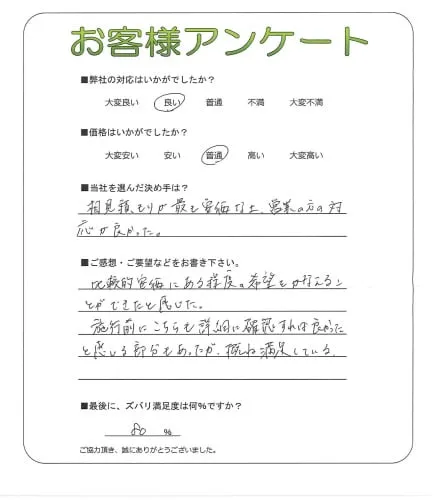 お客様アンケート
■弊社の対応はいかがでしたか？
大変良い 良い 普通 不満 大変不満
■価格はいかがでしたか？
大変安い 安い 普通 高い 大変高い
■当社を選んだ決め手は？
相見積もりが最も安価な上、営業の方の対
応が良かった。
■ご感想・ご要望などをお書き下さい。
比較的安価にある程度の希望をかなえるこ
とができたと感じた。
施行前にこちらも詳細に確認すれば良かった
と感じる部分もあったが、概ね満足している。
■最後に、ズバリ満足度は何％ですか？
80 ％
ご協力頂き、誠にありがとうございました。